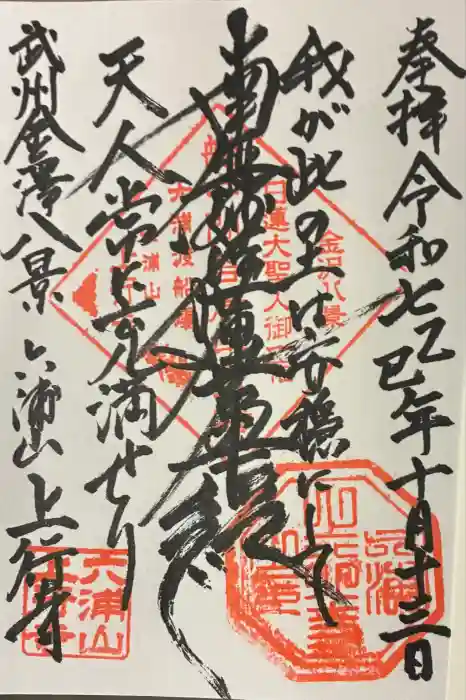 奉拝 令和七乙巳年十月十三日
我が此の土は安穏にして
南無妙法蓮華経
天人常に充満せり
武州金澤八景 六浦山 上行寺
金沢八景
日蓮大聖人御
六浦渡船場
六浦山
上行寺